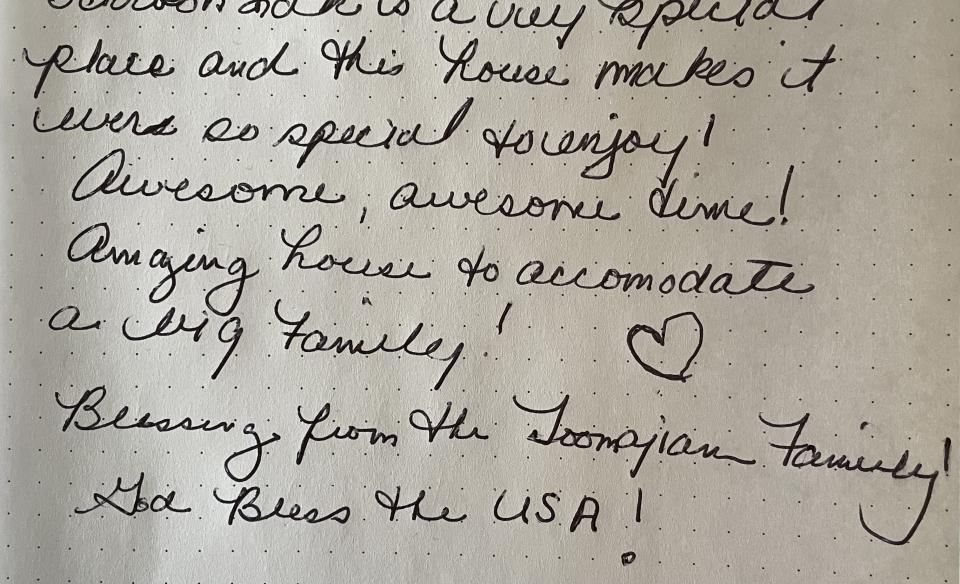 is a very special
place and this house makes it
even so special to enjoy!
Awesome, awesome time!
Amazing house to accomodate
a big Family!
Blessing from the Toomajian Family!
God Bless the USA!